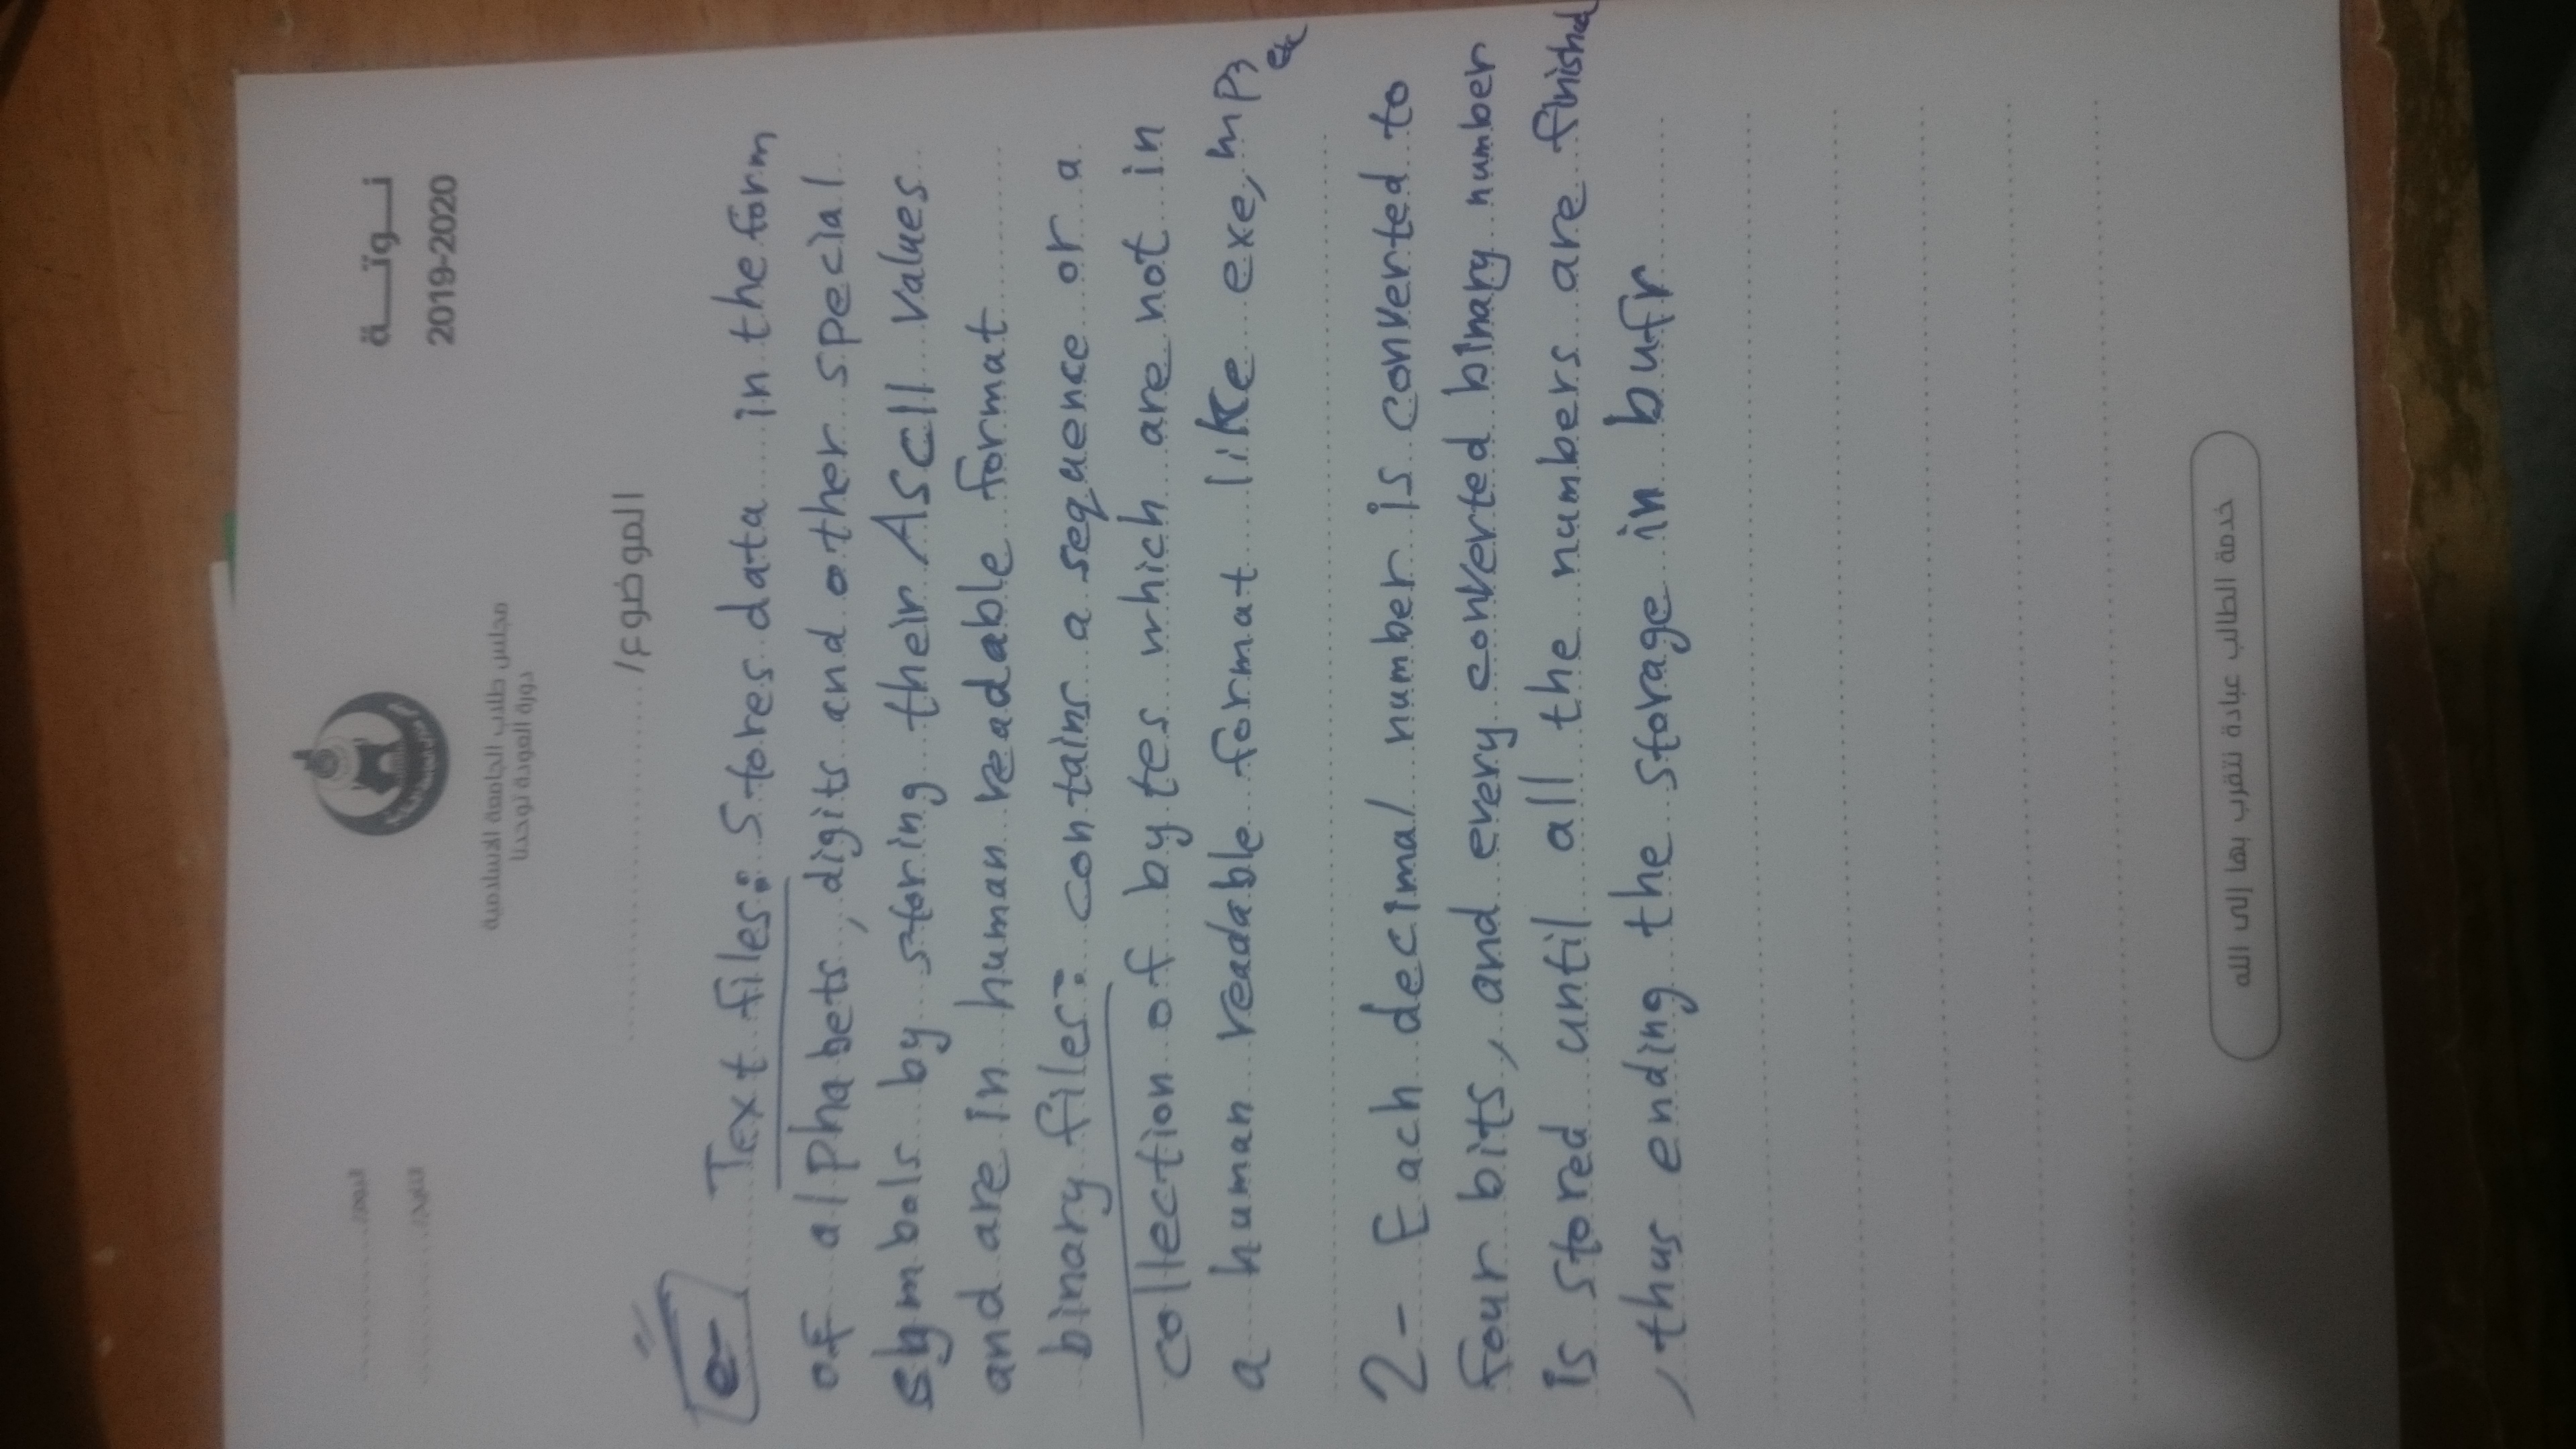 نوتة
2019-2020
اليوم/
التاريخ/
مجلس طلاب الجامعة الاسلامية
دورة العودة توحدنا
الموضوع/
Text files: Stores data in the form
of alphabets, digits and other special
symbols by storing their ASCII values
and are in human readable format
binary files: contains a sequence or a
collection of bytes which are not in
a human readable format like exe, mp3
etc
2- Each decimal number is converted to
four bits, and every converted binary number
is stored until all the numbers are finished
, thus ending the storage in bufr
خدمة الطالب عبادة نتقرب بها إلى الله